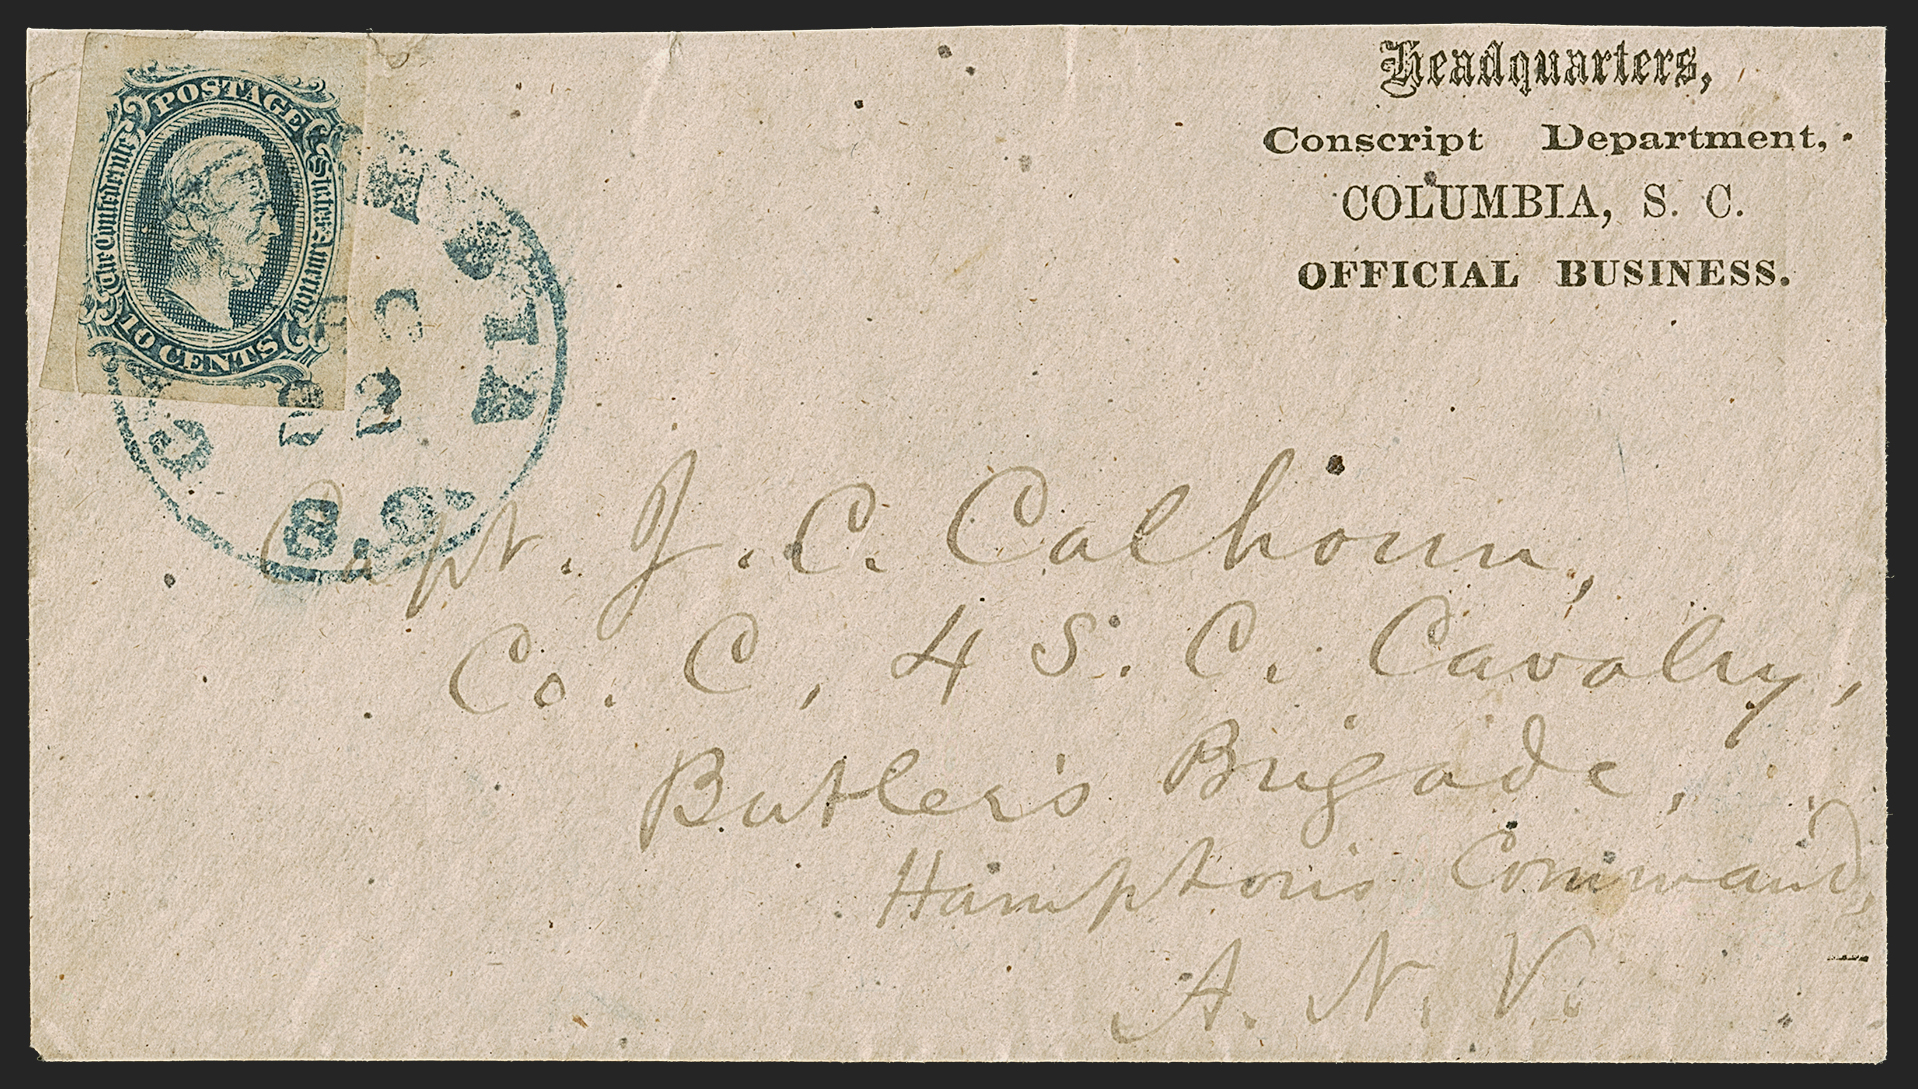 POSTAGE
The Confederate States of America
10 CENTS
COLUMBIA
22
S. C.
Headquarters,
Conscript Department,
COLUMBIA, S. C.
OFFICIAL BUSINESS.
Capt. J. C. Calhoun,
Co. C, 4 S. C. Cavalry,
Butler's Brigade,
Hampton's Command,
A. N. V.